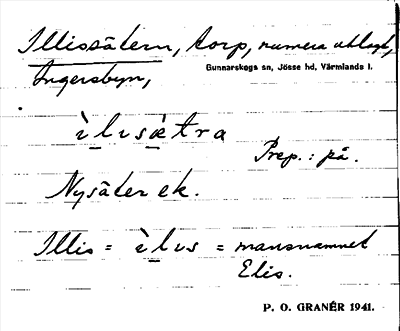 Illissätern, torp, numera utlagt,
Gunnarskogs sn, Jösse hd, Värmlands l.
Ingersbyn,
ì̱lisæ̱tra
Prep.: på.
Nysäter ek.
Illis = ì̱lis = mansnamnet
Elis.
P. O. GRANÉR 1941.